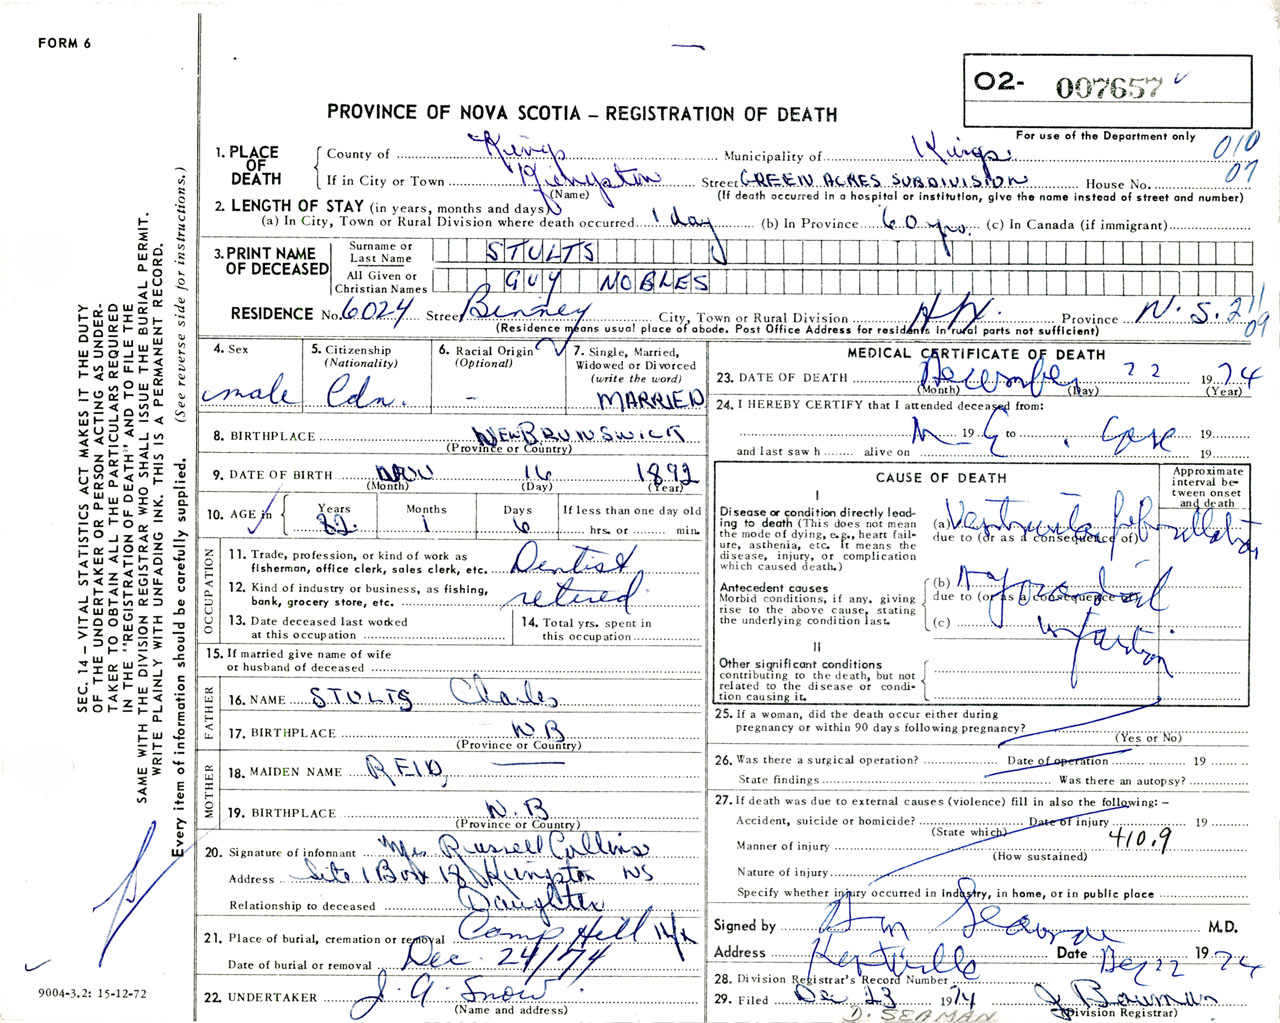 FORM 6
O2- 007657
For use of the Department only
PROVINCE OF NOVA SCOTIA – REGISTRATION OF DEATH
010
07
1. PLACE OF DEATH
County of Kings Municipality of Kings
If in City or Town Kingston Street GREEN ACRES SUBDIVISION House No.
(Name) (If death occurred in a hospital or institution, give the name instead of street and number)
2. LENGTH OF STAY (in years, months and days)
(a) In City, Town or Rural Division where death occurred 1 day (b) In Province 60 yrs. (c) In Canada (if immigrant)
3. PRINT NAME OF DECEASED
Surname or Last Name STULTS
All Given or Christian Names GUY NOBLES
RESIDENCE No. 6024 Street Binney City, Town or Rural Division Hfx. Province N.S. 211
09
(Residence means usual place of abode. Post Office Address for residents in rural parts not sufficient)
4. Sex
male
5. Citizenship
(Nationality)
Cdn.
6. Racial Origin
(Optional)
-
7. Single, Married,
Widowed or Divorced
(write the word)
MARRIED
8. BIRTHPLACE NEW BRUNSWICK
(Province or Country)
9. DATE OF BIRTH NOV 16 1892
(Month) (Day) (Year)
10. AGE in
Years Months Days If less than one day old
82. 1 6 hrs. or min.
OCCUPATION
11. Trade, profession, or kind of work as
fisherman, office clerk, sales clerk, etc. Dentist
12. Kind of industry or business, as fishing,
bank, grocery store, etc. retired
13. Date deceased last worked
at this occupation
14. Total yrs. spent in
this occupation
15. If married give name of wife
or husband of deceased
FATHER
16. NAME STULTS Charles
17. BIRTHPLACE N B
(Province or Country)
MOTHER
18. MAIDEN NAME REID
19. BIRTHPLACE N.B
(Province or Country)
20. Signature of informant Mrs Russell Collins
Address Site 1 Box 18 Kingston NS
Relationship to deceased Daughter
21. Place of burial, cremation or removal Camp Hill Hfx
Date of burial or removal Dec. 24/74
22. UNDERTAKER J. A. Snow
(Name and address)
MEDICAL CERTIFICATE OF DEATH
23. DATE OF DEATH December 22 1974
(Month) (Day) (Year)
24. I HEREBY CERTIFY that I attended deceased from:
M. E. 19 to Case 19
and last saw h alive on 19
CAUSE OF DEATH
Approximate
interval be-
tween onset
and death
I
Disease or condition directly lead-
ing to death (This does not mean
the mode of dying, e.g., heart fail-
ure, asthenia, etc. It means the
disease, injury, or complication
which caused death.)
(a) Ventricular fibrillation
due to (or as a consequence of)
Antecedent causes
Morbid conditions, if any, giving
rise to the above cause, stating
the underlying condition last.
(b) Myocardial
due to (or as a consequence of)
(c) infarction
II
Other significant conditions
contributing to the death, but not
related to the disease or condi-
tion causing it.
25. If a woman, did the death occur either during
pregnancy or within 90 days following pregnancy?
(Yes or No)
26. Was there a surgical operation? Date of operation 19
State findings Was there an autopsy?
27. If death was due to external causes (violence) fill in also the following: –
Accident, suicide or homicide? Date of injury 19
(State which)
410.9
Manner of injury
(How sustained)
Nature of injury
Specify whether injury occurred in industry, in home, or in public place
Signed by Seaman M.D.
Address Kentville Date Dec 22 1974
28. Division Registrar's Record Number
29. Filed Dec 23 1974 J Bowman
(Division Registrar)
D. SEAMAN
SEC. 14 – VITAL STATISTICS ACT MAKES IT THE DUTY
OF THE UNDERTAKER OR PERSON ACTING AS UNDER-
TAKER TO OBTAIN ALL THE PARTICULARS REQUIRED
IN THE "REGISTRATION OF DEATH" AND TO FILE THE
SAME WITH THE DIVISION REGISTRAR WHO SHALL ISSUE THE BURIAL PERMIT.
WRITE PLAINLY WITH UNFADING INK. THIS IS A PERMANENT RECORD.
Every item of information should be carefully supplied. (See reverse side for instructions.)
9004-3.2: 15-12-72